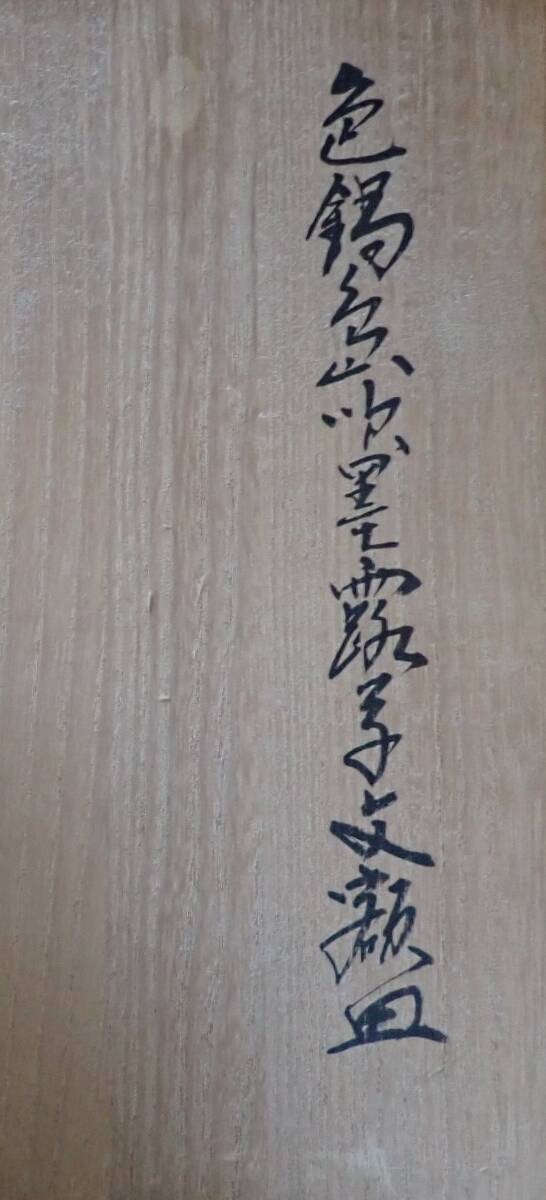 色鍋島吹墨露草文額皿